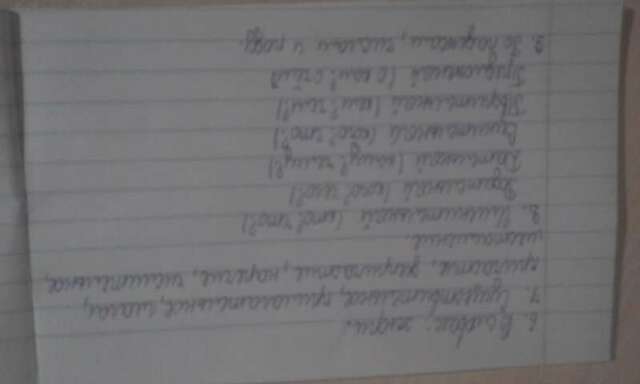 6. В словах: жюри.
7. Существительное, прилагательное, глагол,
причастие, деепричастие, наречие, числительное,
местоимение.
8. Именительный (кто? что?)
Родительный (кого? чего?)
Дательный (кому? чему?)
Винительный (кого? что?)
Творительный (кем? чем?)
Предложный (о ком? о чём
9. По падежам, числам и роду.